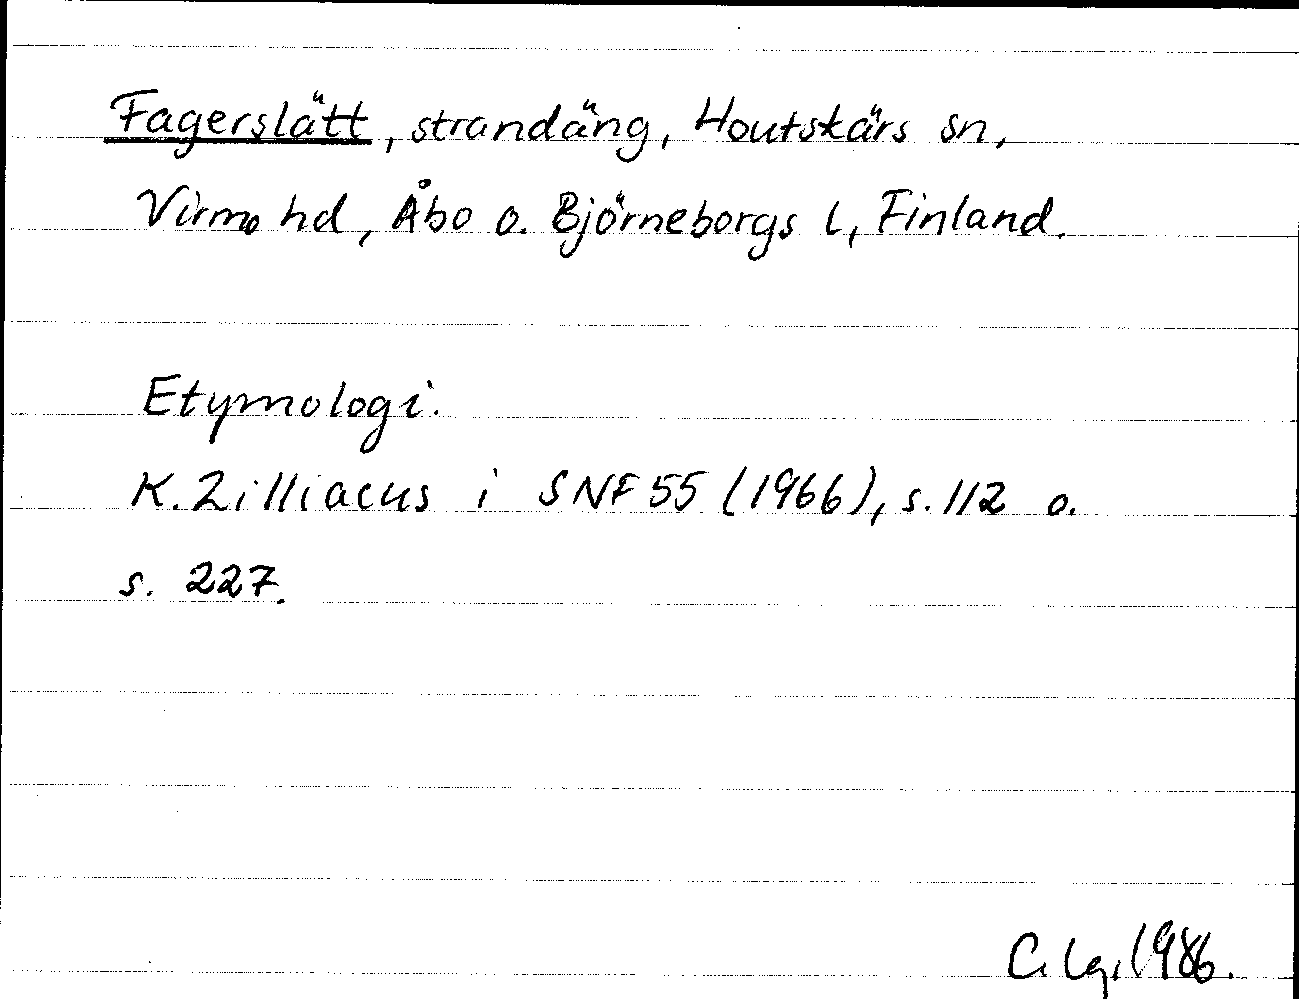 Fagerslätt, strandäng, Houtskärs sn,
Virmo hd, Åbo o. Björneborgs l, Finland.
Etymologi.
K. Zilliacus i SNF 55 (1966), s. 112 o.
s. 227.
C. Lg, 1986.